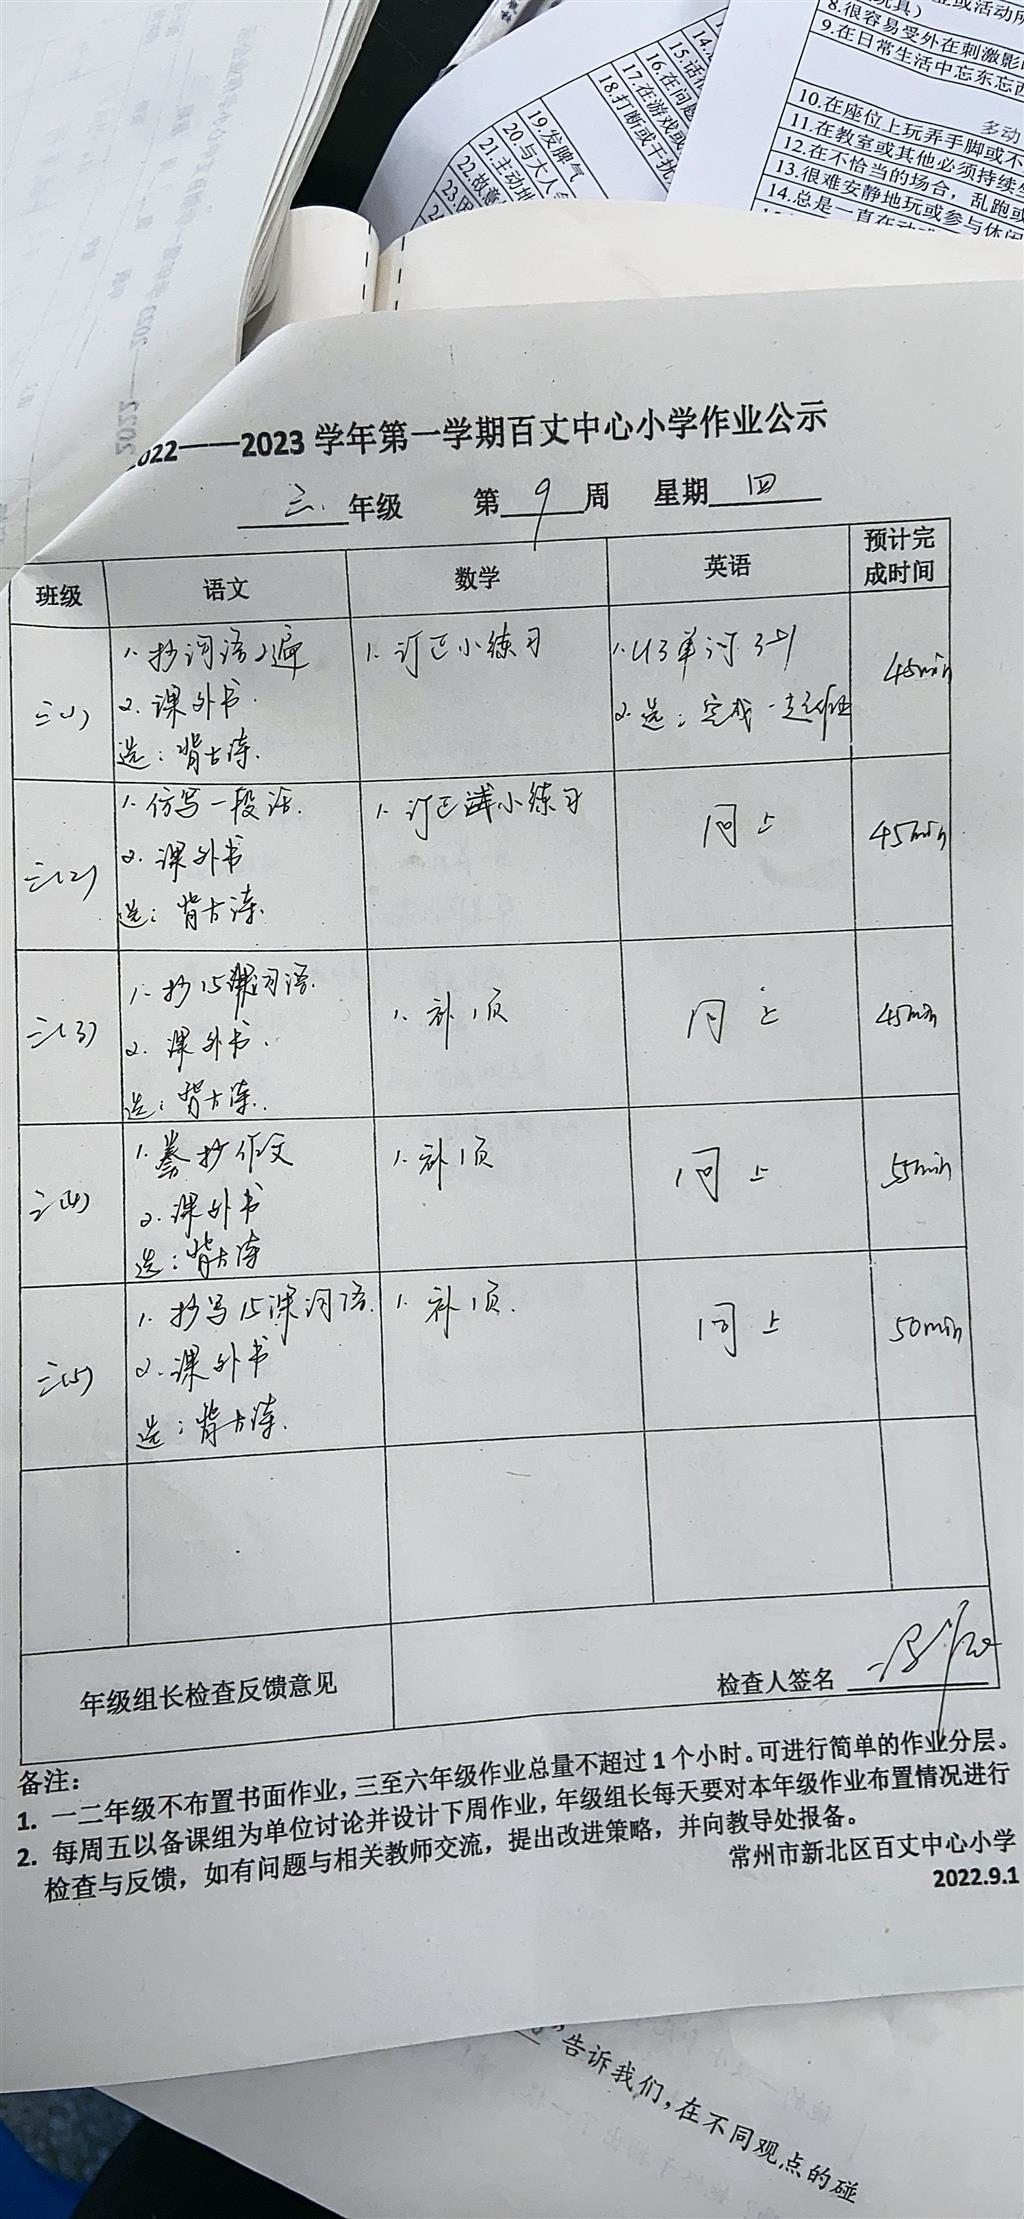 8.很容易受外在刺激影
9.在日常生活中忘东忘西
多动
10.在座位上玩弄手脚或不
11.在教室或其他必须持续
12.在不恰当的场合，乱跑或
13.很难安静地玩或参与休闲
14.总是一直在动
15.活
16.在问题
17.在游戏或
18.打断或干扰
19.发脾气
20.与大人
21.主动地
22.故意
23.因
022——2023 学年第一学期百丈中心小学作业公示
三.年级 第9周 星期四
班级 语文 数学 英语 预计完成时间
三(1)
1.抄词语2遍
2.课外书.
选：背古诗.
1.订正小练习
1.U3单词3+1
2.选：完成一起作业
45min
三(2)
1.仿写一段话.
2.课外书
选：背古诗.
1.订正小练习
同上
45min
三(3)
1.抄15课词语.
2.课外书.
选：背古诗.
1.补1页
同上
45min
三(4)
1.誊抄作文
2.课外书
选：背古诗
1.补1页
同上
55min
三(5)
1.抄写15课词语.
2.课外书
选：背古诗.
1.补1页.
同上
50min
年级组长检查反馈意见
检查人签名
备注：
1. 一二年级不布置书面作业，三至六年级作业总量不超过 1 个小时。可进行简单的作业分层。
2. 每周五以备课组为单位讨论并设计下周作业，年级组长每天要对本年级作业布置情况进行
检查与反馈，如有问题与相关教师交流，提出改进策略，并向教导处报备。
常州市新北区百丈中心小学
2022.9.1
告诉我们，在不同观点的碰